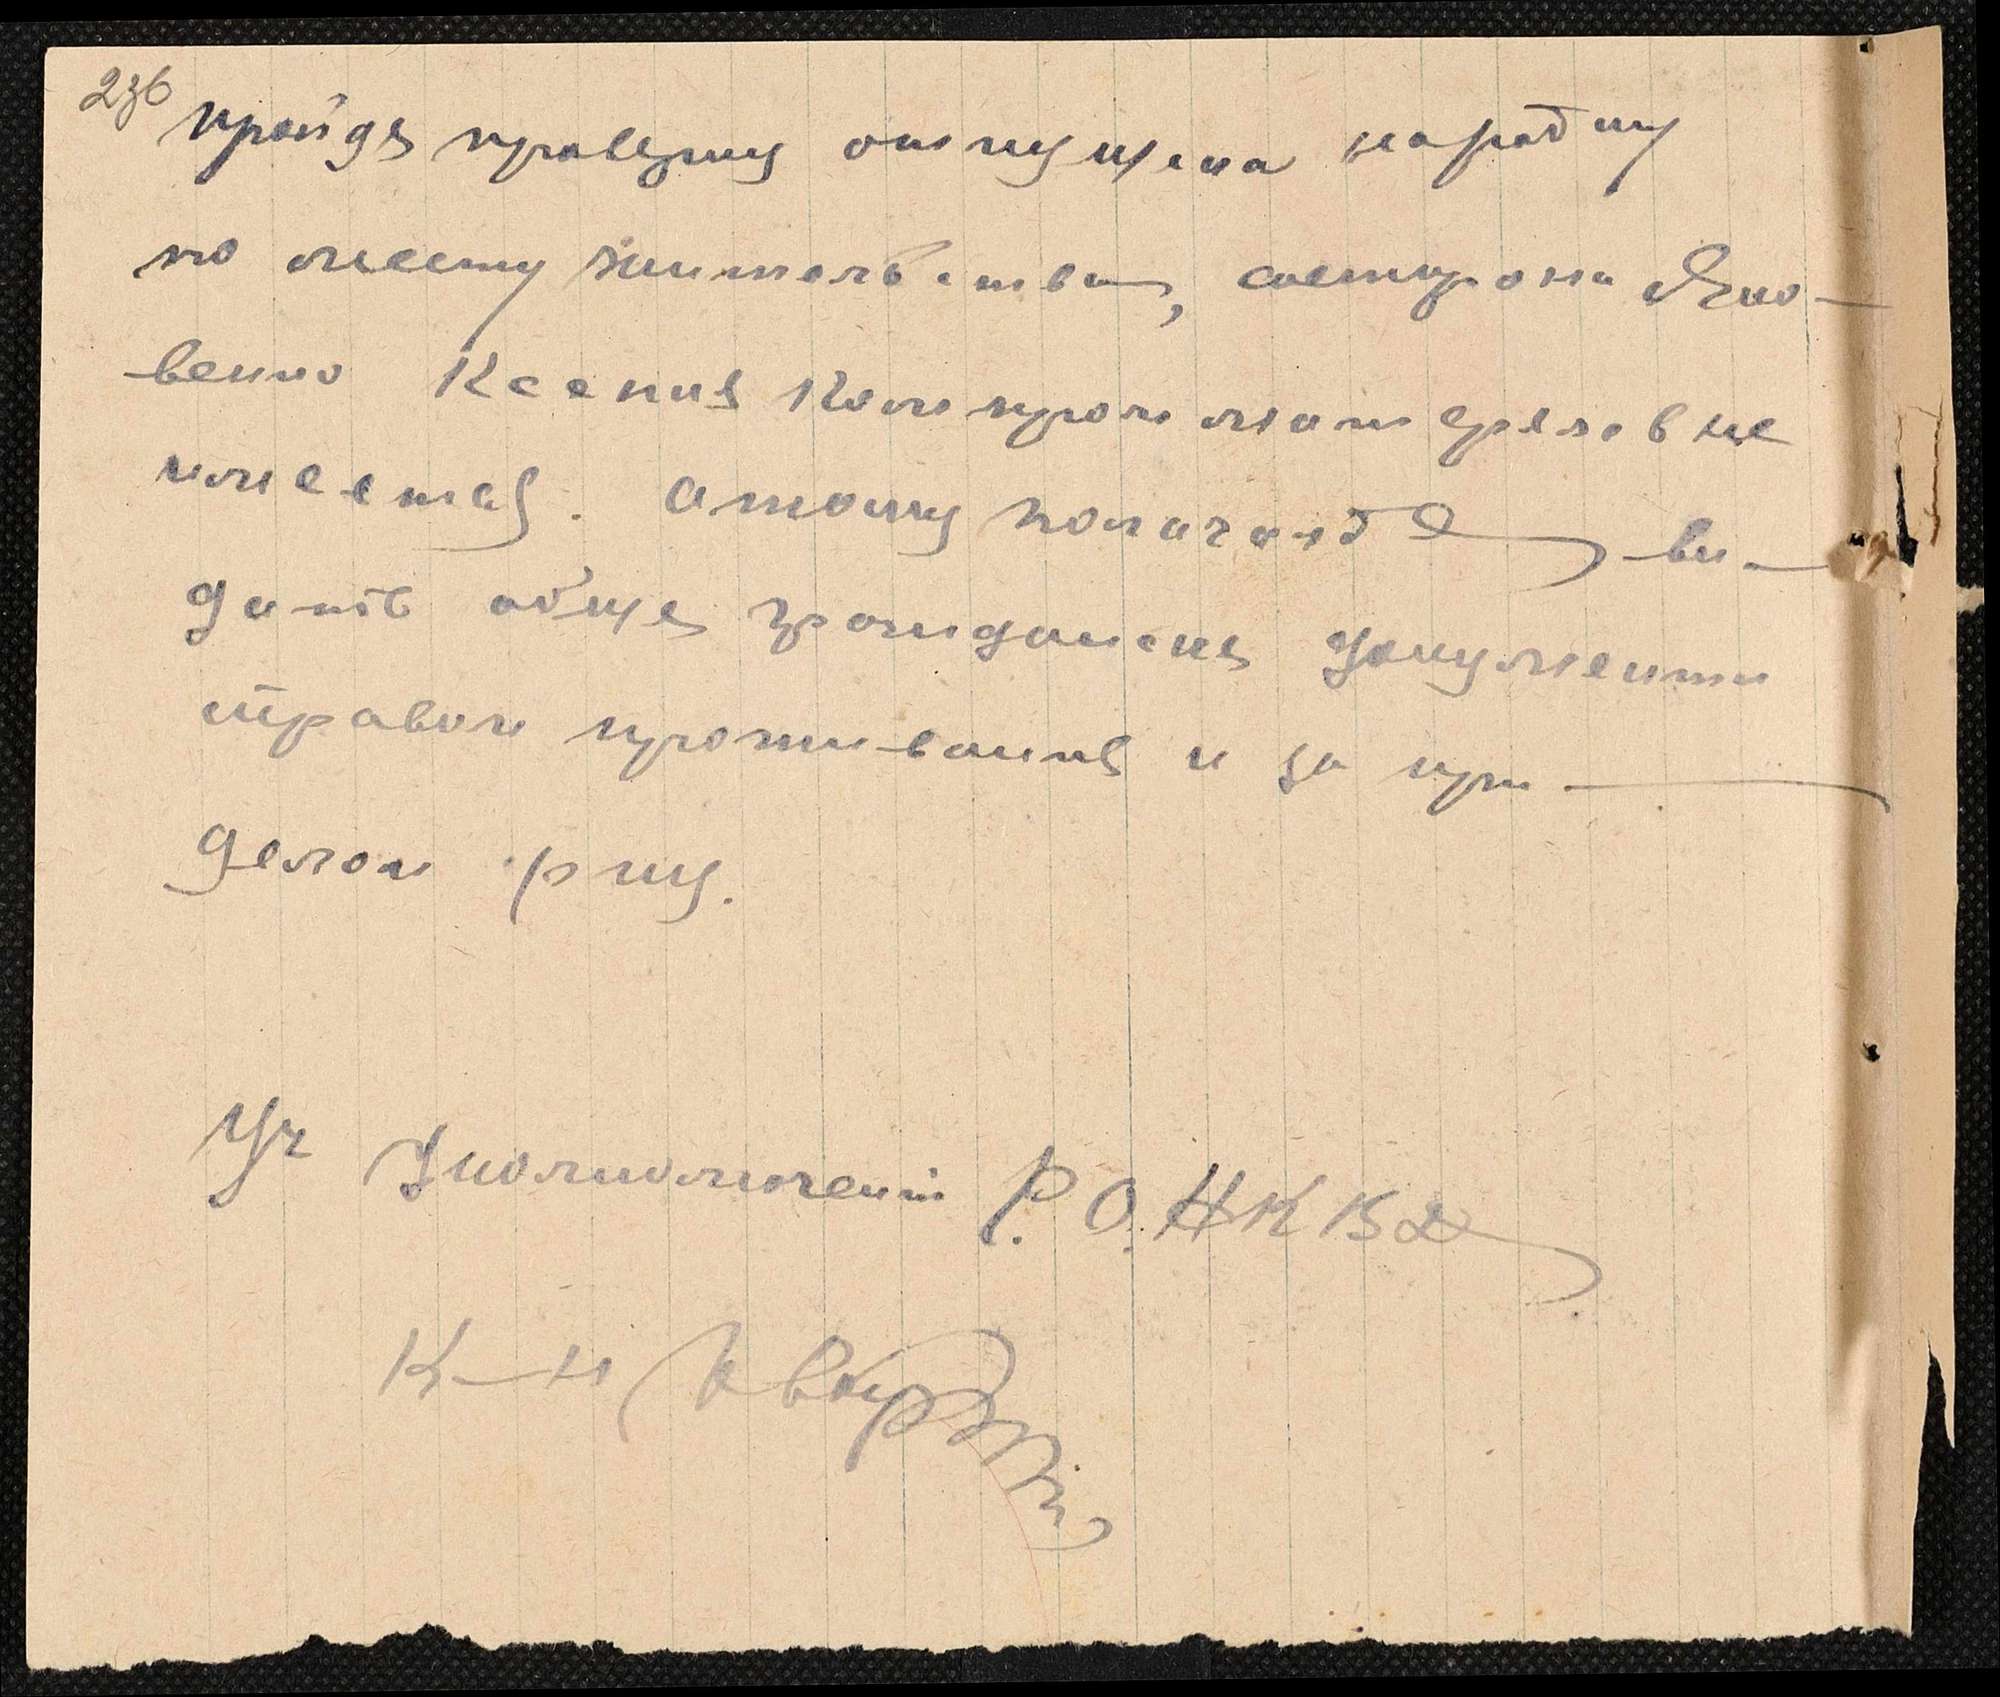 236
пройдя проверку отпущена наработу
по месту жительства, с сторони Яко-
венко Ксения Компромматерялов не
имеется. Атому полагалбе ви-
дать обще гражданские документи
справом проживания и за при-
делом рту.
Уч Уполномочений Р.О. НКВД
К-н